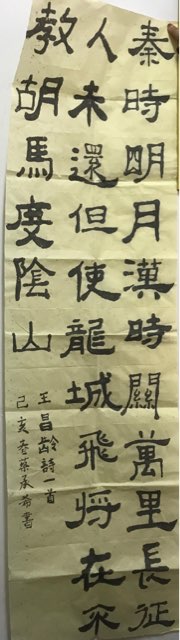 秦時明月漢時關萬里長征
人未還但使龍城飛将在不
教胡馬度陰山
王昌齡詩一首
己亥春承希書